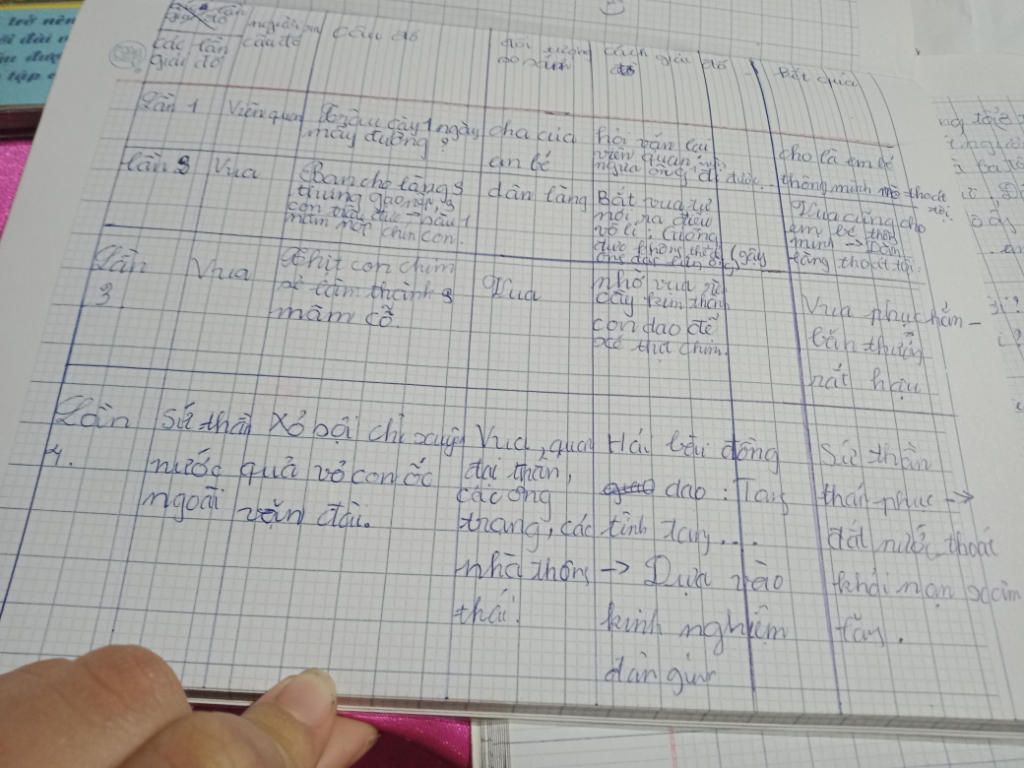 trở nên
các lần giải đố
người ra câu đố
câu đố
đối tượng so sánh
cách giải đố
kết quả
Lần 1
Viên quan
Trâu cày 1 ngày
mấy đường?
cha của
em bé
hỏi vặn lại
viên quan:
ngựa ông đi được...
cho là em bé
thông minh
Lần 2
Vua
Ban cho làng 3
thúng gạo nếp, 3
con trâu đực
mâm một chín con.
dân làng
Bắt vua tự
nói ra điều
vô lí: Giống
đực không thể
Vua công
em bé thông
minh → Dân
làng thoát tội.
Lần
3
Vua
Thịt con chim
sẻ làm thành 3
mâm cỗ.
Vua
nhờ vua rèn
cây kim thành
con dao để
xẻ thịt chim.
Vua phục hẳn –
bắn thưởng
rất hậu
Lần
4.
Sứ thần
nước
ngoài
Xỏ sợi chỉ xuyên
quả vỏ con ốc
vặn dài.
Vua, quan
đại thần,
các ông
trạng, các
nhà thông
thái.
Hát câu đồng
dao: Tang
tình tang....
→ Dựa vào
kinh nghiệm
dân gian
Sứ thần
thán phục →
đất nước thoát
khỏi nạn xâm
lăng.